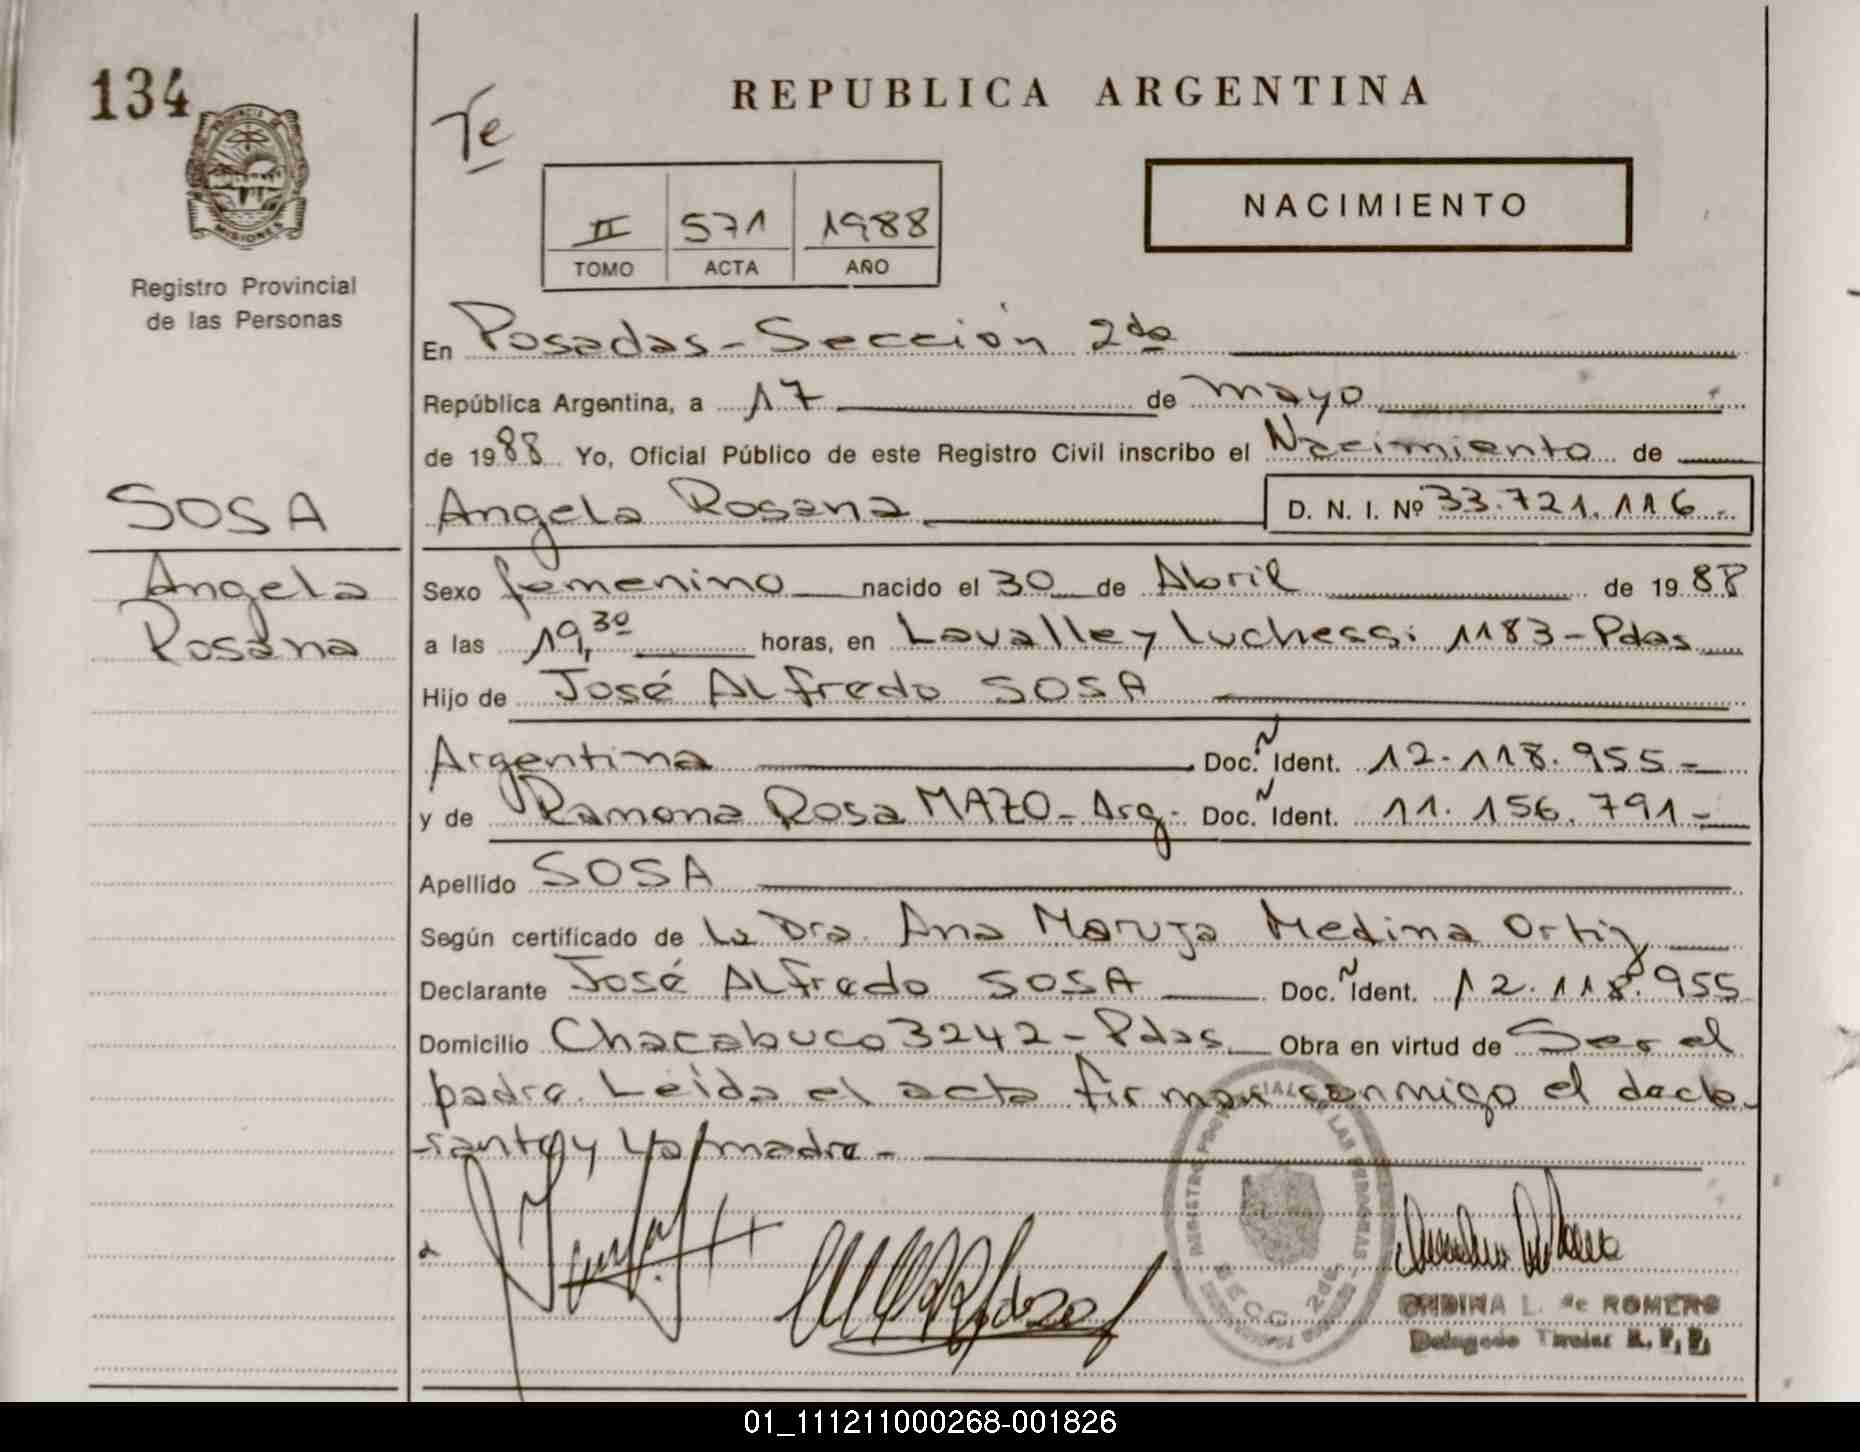 134
REPUBLICA ARGENTINA
Te
PROVINCIA DE
MISIONES
II 571 1988
TOMO ACTA AÑO
NACIMIENTO
Registro Provincial
de las Personas
En Posadas - Sección 2da
República Argentina, a 17 de mayo
de 1988 Yo, Oficial Público de este Registro Civil inscribo el Nacimiento de
SOSA
Angela Rosana D. N. I. Nº 33.721.116.-
Angela
Rosana
Sexo femenino nacido el 30 de Abril de 1988
a las 19,30 horas, en Lavalle y Luchessi 1183 - Pdas
Hijo de José Alfredo SOSA
Argentina Doc. Ident. 12.118.955-
y de Ramona Rosa MAZO - Arg. Doc. Ident. 11.156.791-
Apellido SOSA
Según certificado de La Dra. Ana Maruja Medina Ortiz
Declarante José Alfredo SOSA Doc. Ident. 12.118.955
Domicilio Chacabuco 3242 - Pdas. Obra en virtud de Ser el
padre. Leída el acta firman conmigo el decla-
rante y la madre -
SECC. 2da.
ONDINA L. de ROMERO
Delegado Titular R. P. P.
01_111211000268-001826